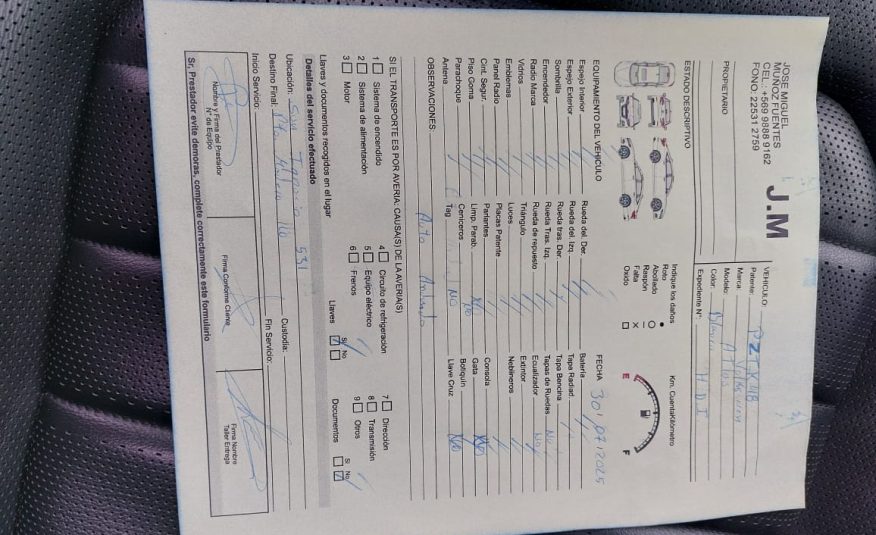 JOSE MIGUEL
MUÑOZ FUENTES
CEL.: +569 9888 9162
FONO: 22531 2759
J.M
PROPIETARIO
VEHICULO:
Patente:
Marca:
Modelo:
Color: Blanco
Expediente N°. H.D.I
ESTADO DESCRIPTIVO
Indique los daños
Roto ●
Abollado O
Raspón I
Falta X
Oxido □
Km. CuentaKilómetro
E F
EQUIPAMIENTO DEL VEHICULO
FECHA 30/07/2025
Espejo Interior
Espejo Exterior
Sombrilla
Encendedor
Radio Marca
Vidrios
Emblemas
Panel Radio
Cint. Segur.
Piso Goma
Parachoque
Antena
Rueda del. Der.
Rueda del. Izq.
Rueda tras. Der.
Rueda Tras. Izq.
Rueda de repuesto
Triángulo
Luces
Placas Patente
Parlantes
Limp. Parab.
Ceniceros NO
Tag
Batería
Tapa Radiad
Tapa Bencina
Tapas de Ruedas No
Equalizador No
Extintor
Neblineros
Consola
Gata
Botiquín
Llave Cruz
OBSERVACIONES: Auto
SI EL TRANSPORTE ES POR AVERIA: CAUSA(S) DE LA AVERIA(S)
1 □ Sistema de encendido
2 □ Sistema de alimentación
3 □ Motor
4 □ Circuito de refrigeración
5 □ Equipo eléctrico
6 □ Frenos
7 □ Dirección
8 □ Transmisión
9 □ Otros
Llaves y documentos recogidos en el lugar
Llaves Si No
Documentos Si No
Detalles del servicio efectuado
Ubicación: San Ignacio 531
Custodia:
Destino Final: Pto.
Inicio Servicio:
Fin Servicio:
Nombre y Firma del Prestador
N° de Equipo
Firma Conforme Cliente
Firma Nombre
Taller Entrega
Sr. Prestador evite demoras, complete correctamente este formulario